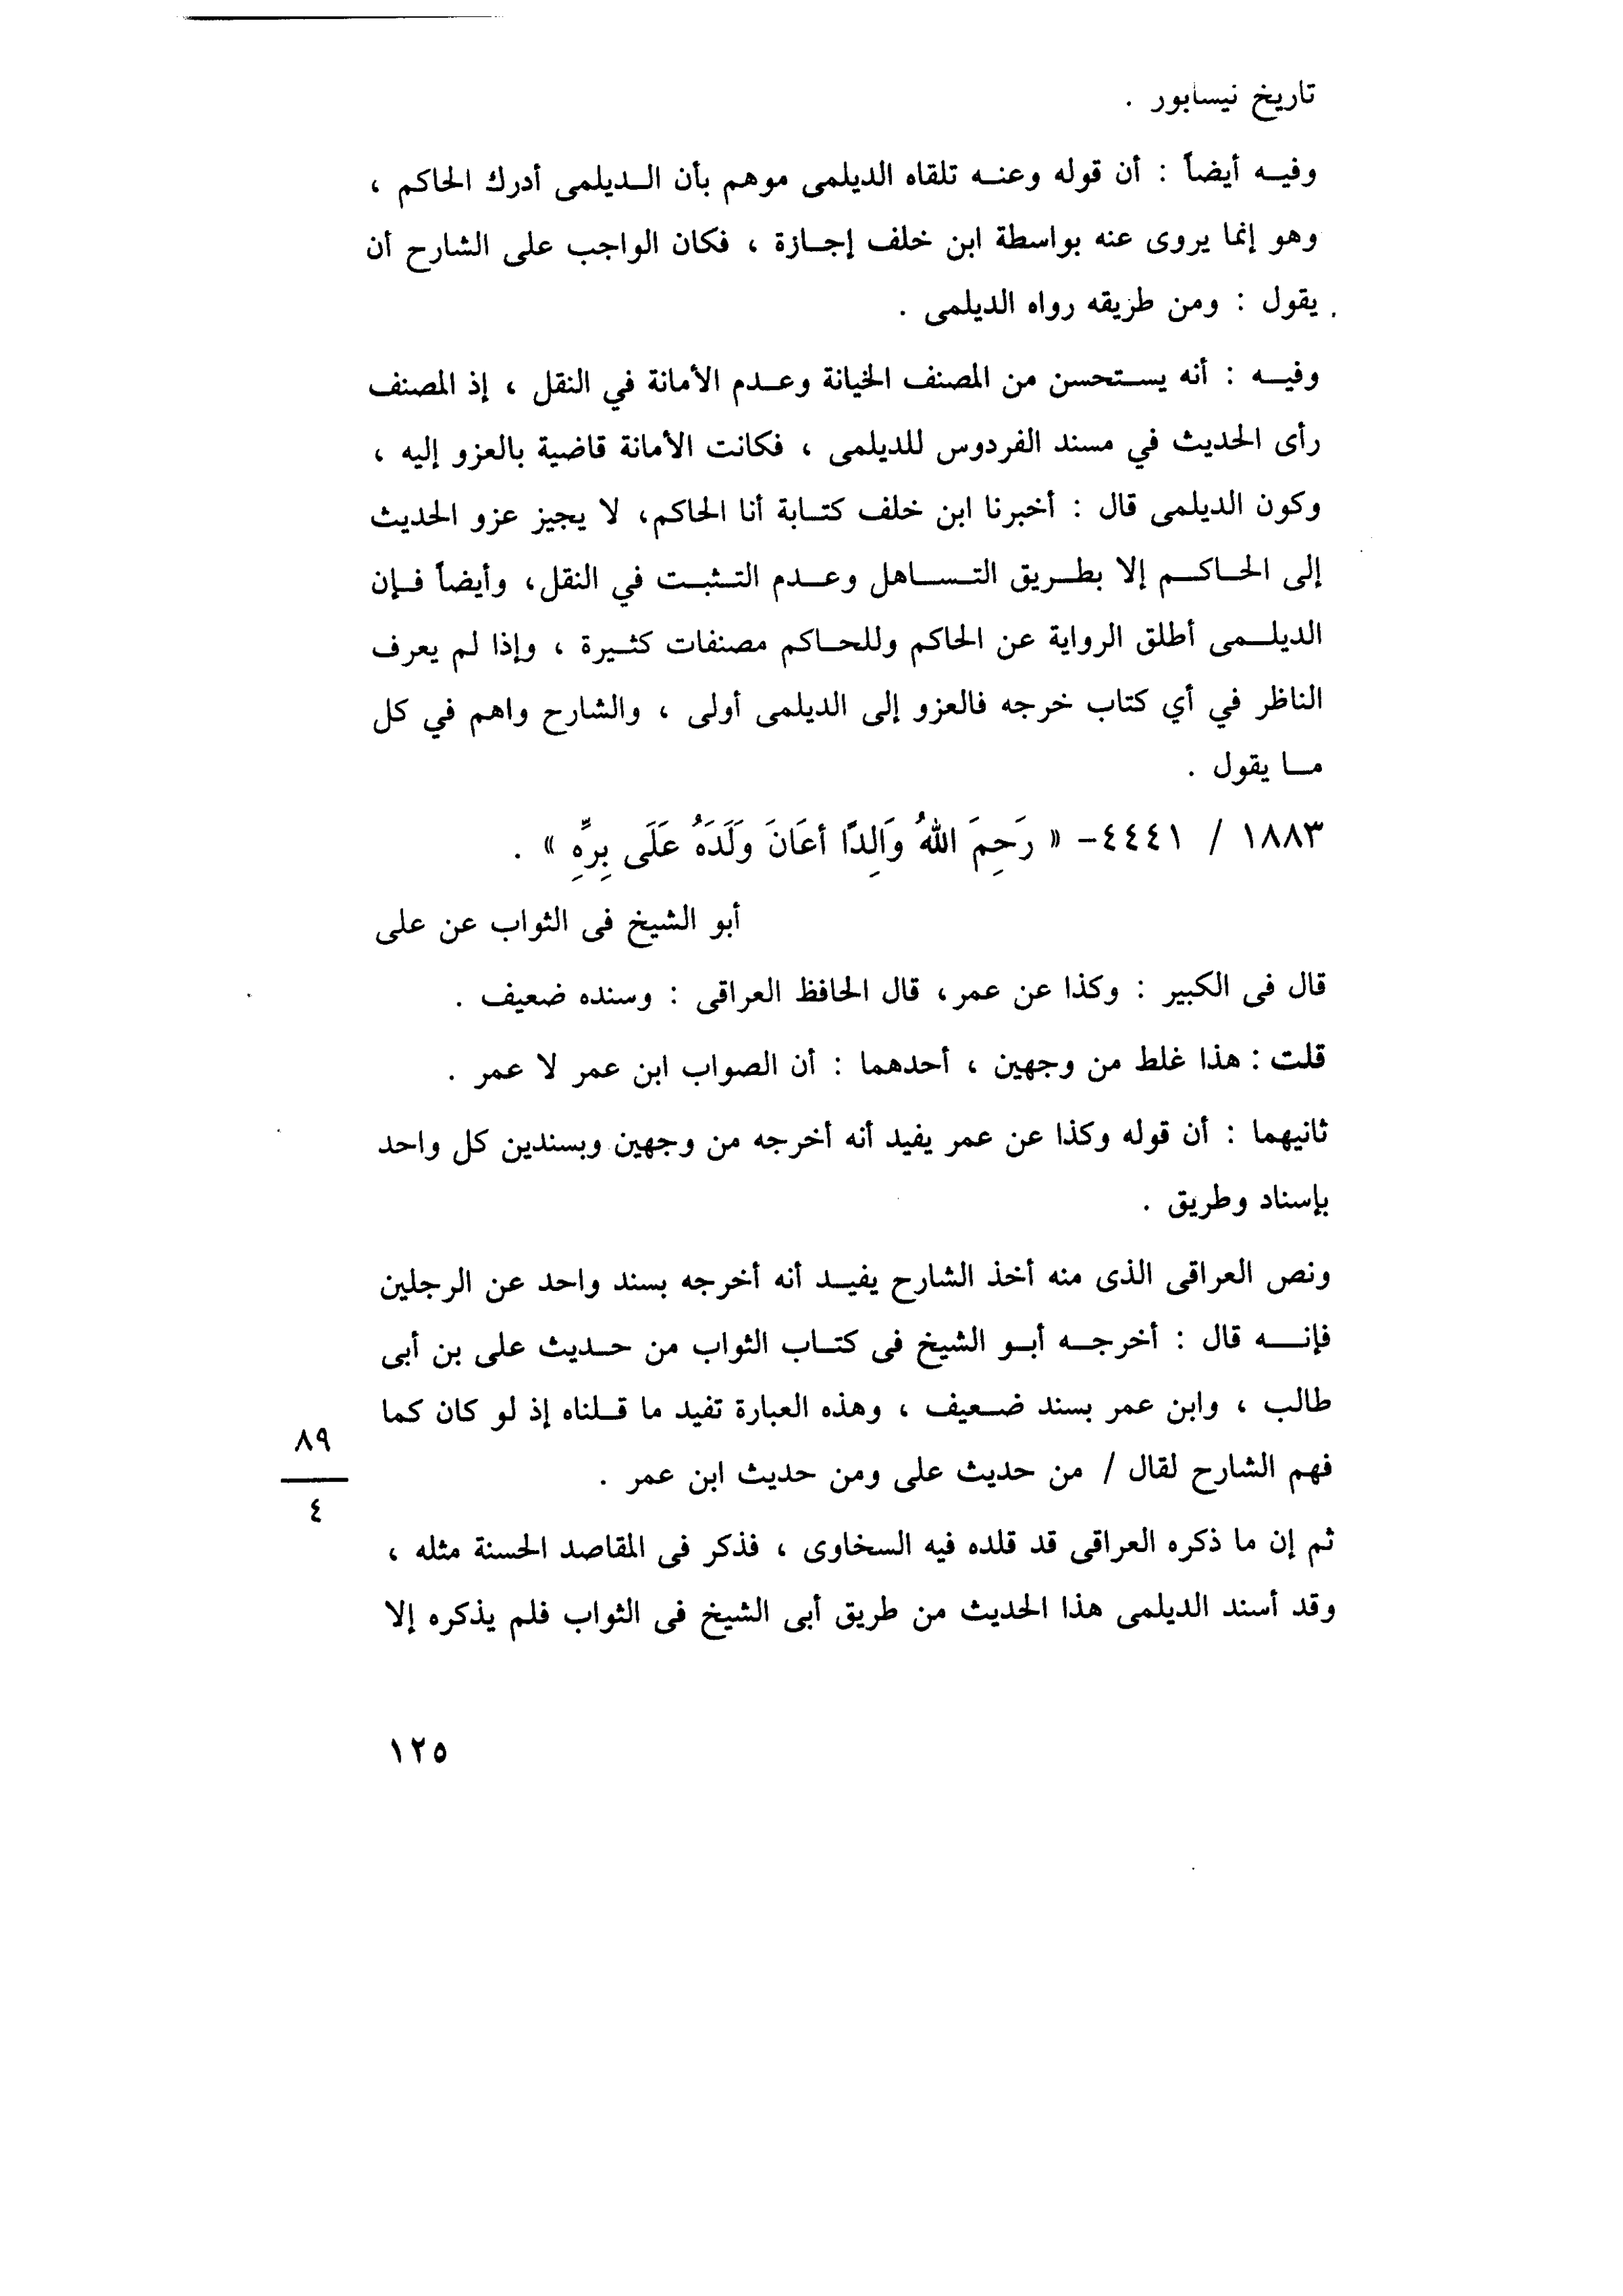 تاريخ نيسابور .
وفيه أيضاً : أن قوله وعنه تلقاه الديلمى موهم بأن الديلمى أدرك الحاكم ،
وهو إنما يروى عنه بواسطة ابن خلف إجازة ، فكان الواجب على الشارح أن
يقول : ومن طريقه رواه الديلمى .
وفيه : أنه يستحسن من المصنف الخيانة وعدم الأمانة في النقل ، إذ المصنف
رأى الحديث في مسند الفردوس للديلمى ، فكانت الأمانة قاضية بالعزو إليه ،
وكون الديلمى قال : أخبرنا ابن خلف كتابة أنا الحاكم، لا يجيز عزو الحديث
إلى الحاكم إلا بطريق التساهل وعدم التثبت في النقل، وأيضاً فإن
الديلمى أطلق الرواية عن الحاكم وللحاكم مصنفات كثيرة ، وإذا لم يعرف
الناظر في أي كتاب خرجه فالعزو إلى الديلمى أولى ، والشارح واهم في كل
ما يقول .
١٨٨٣ / ٤٤٤١- « رَحِمَ اللهُ وَالِدًا أعَانَ وَلَدَهُ عَلَى بِرِّهِ » .
أبو الشيخ فى الثواب عن على
قال فى الكبير : وكذا عن عمر، قال الحافظ العراقى : وسنده ضعيف .
قلت : هذا غلط من وجهين ، أحدهما : أن الصواب ابن عمر لا عمر .
ثانيهما : أن قوله وكذا عن عمر يفيد أنه أخرجه من وجهين وبسندين كل واحد
بإسناد وطريق .
ونص العراقى الذى منه أخذ الشارح يفيد أنه أخرجه بسند واحد عن الرجلين
فإنه قال : أخرجه أبو الشيخ فى كتاب الثواب من حديث على بن أبى
طالب ، وابن عمر بسند ضعيف ، وهذه العبارة تفيد ما قلناه إذ لو كان كما
فهم الشارح لقال / من حديث على ومن حديث ابن عمر .
٨٩
٤
ثم إن ما ذكره العراقى قد قلده فيه السخاوى ، فذكر فى المقاصد الحسنة مثله ،
وقد أسند الديلمى هذا الحديث من طريق أبى الشيخ فى الثواب فلم يذكره إلا
١٢٥